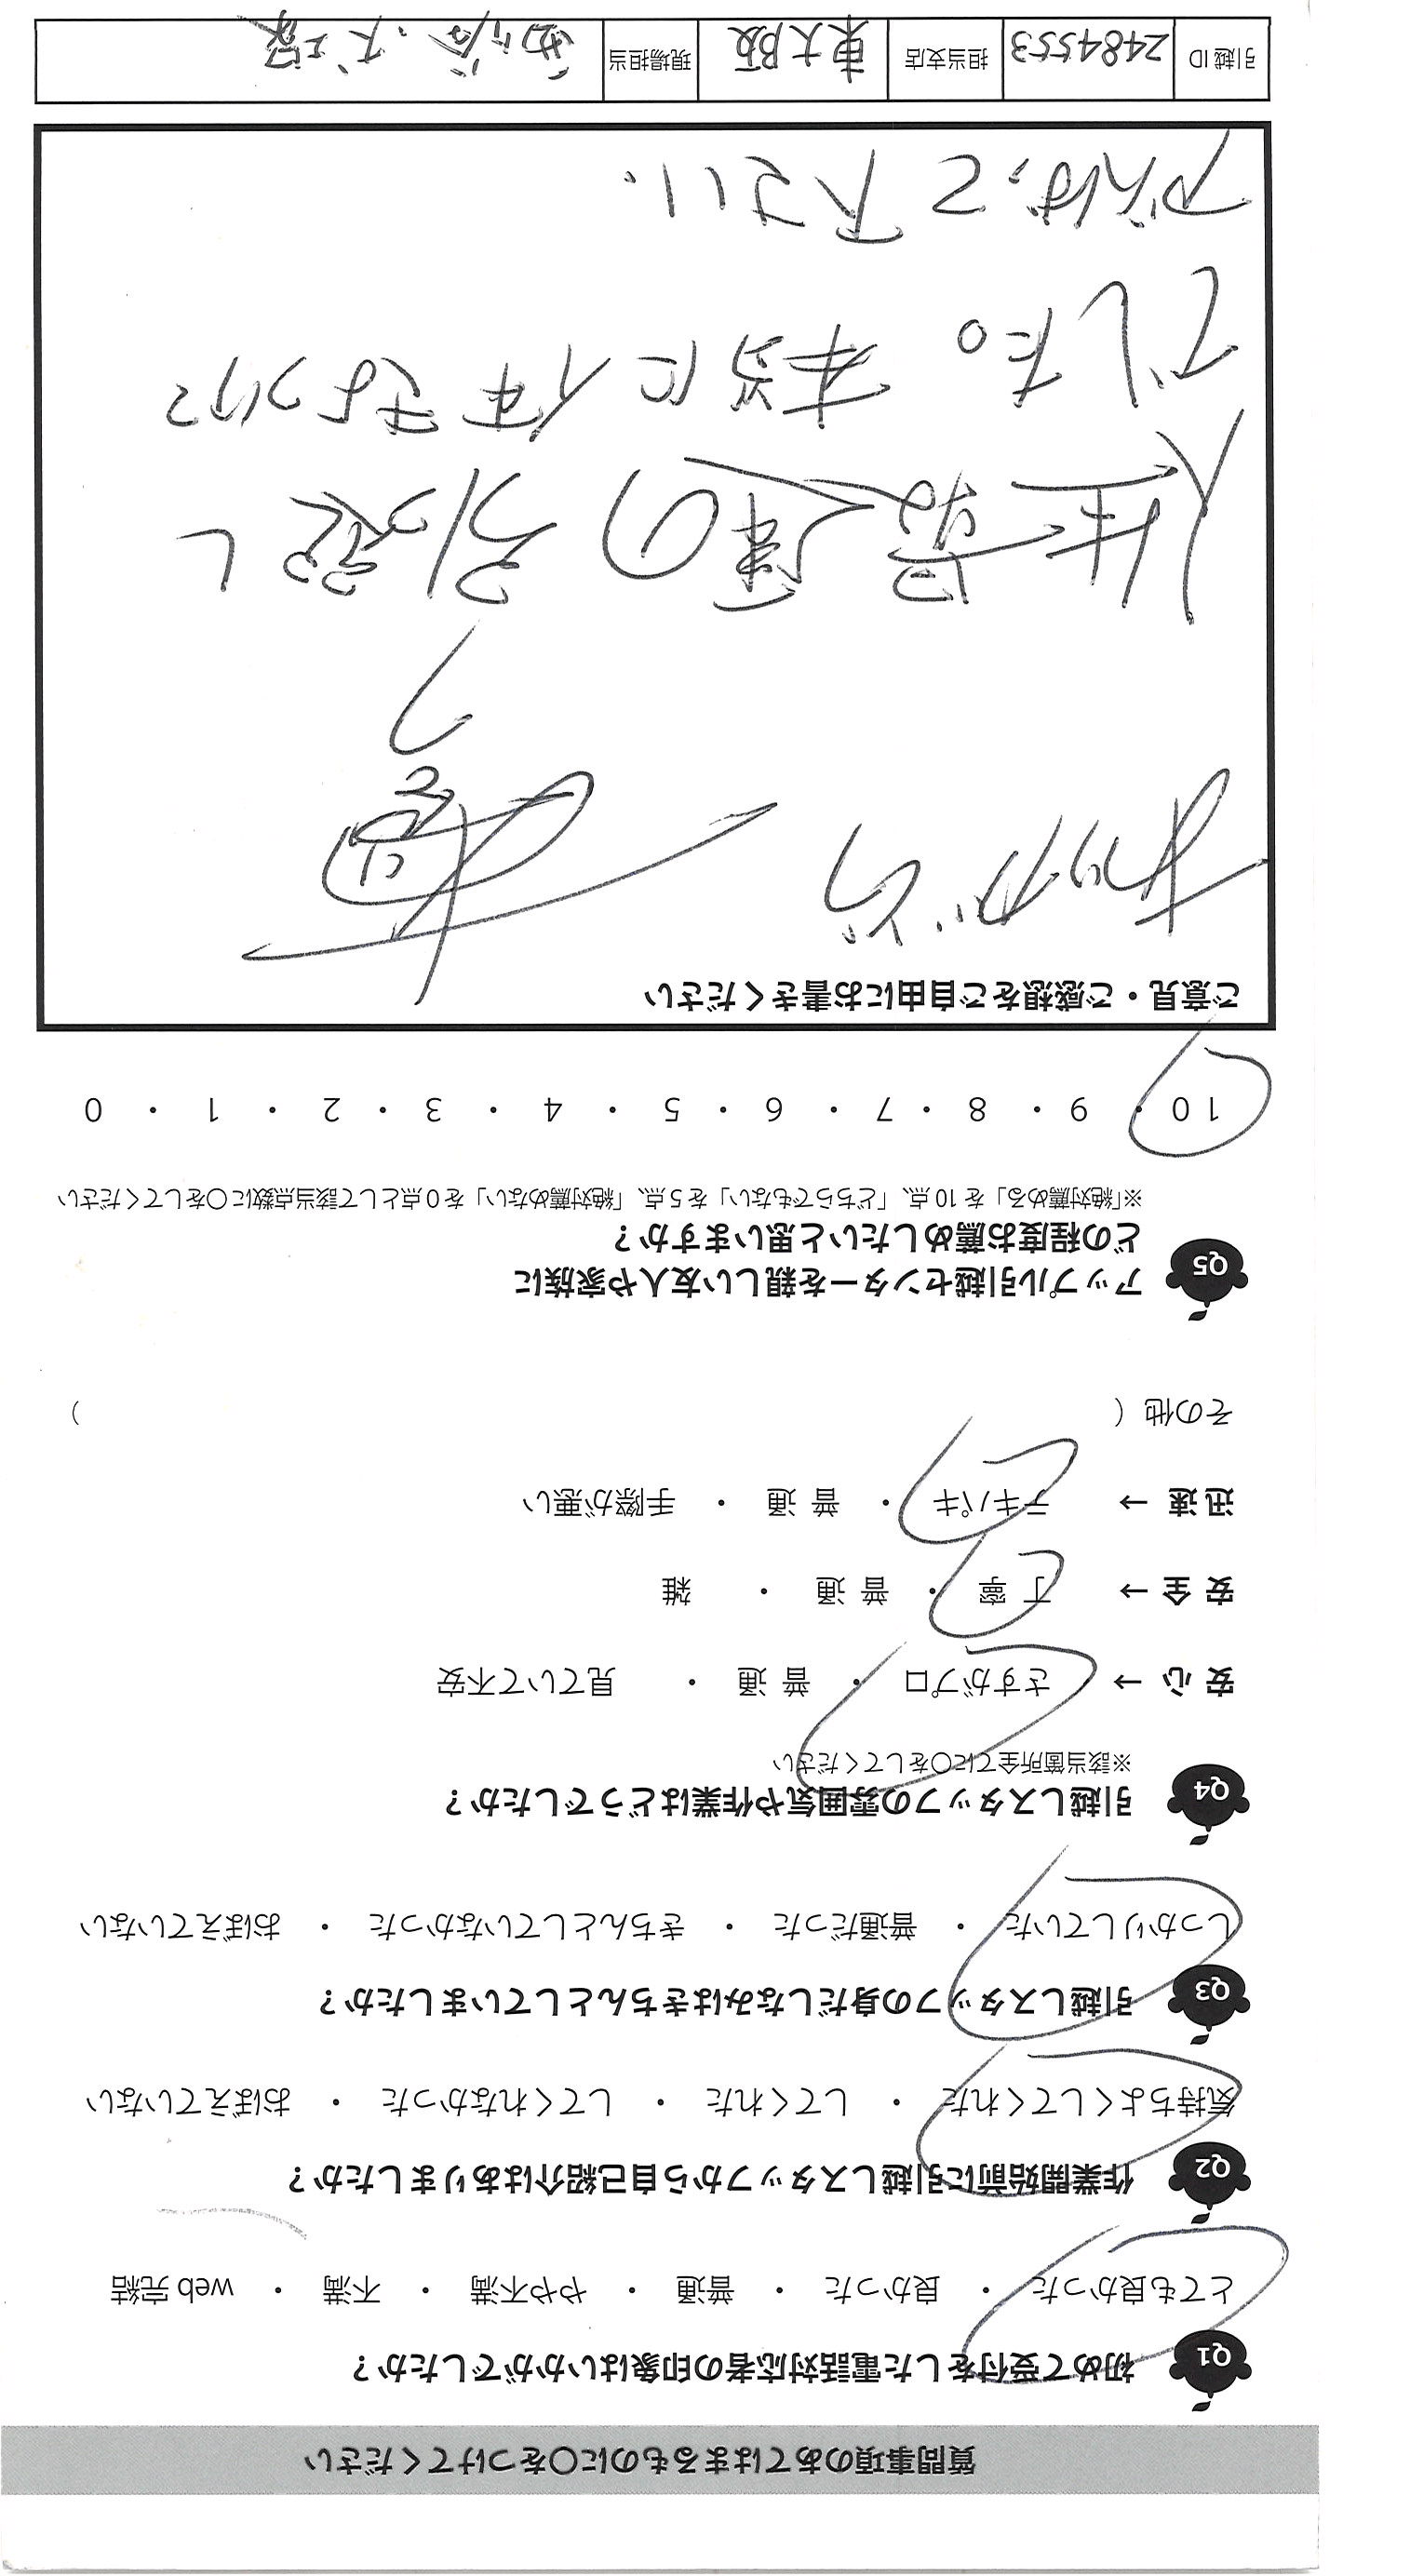 質問事項のあてはまるものに〇をつけてください
Q1 初めて受付をした電話対応者の印象はいかがでしたか?
とても良かった ・ 良かった ・ 普通 ・ やや不満 ・ 不満 ・ web 完結
Q2 作業開始前に引越しスタッフから自己紹介はありましたか?
気持ちよくしてくれた ・ してくれた ・ してくれなかった ・ おぼえていない
Q3 引越しスタッフの身だしなみはきちんとしていましたか?
しっかりしていた ・ 普通だった ・ きちんとしていなかった ・ おぼえていない
Q4 引越しスタッフの雰囲気や作業はどうでしたか?
※該当箇所全てに〇をしてください
安 心 → さすがプロ ・ 普 通 ・ 見ていて不安
安 全 → 丁 寧 ・ 普 通 ・ 雑
迅 速 → テキパキ ・ 普 通 ・ 手際が悪い
その他 ( )
Q5 アップル引越センターを親しい友人や家族に
どの程度お薦めしたいと思いますか?
※「絶対薦める」を 10 点、「どちらでもない」を 5 点、「絶対薦めない」を 0 点として該当点数に〇をしてください
10 ・ 9 ・ 8 ・ 7 ・ 6 ・ 5 ・ 4 ・ 3 ・ 2 ・ 1 ・ 0
ご意見・ご感想をご自由にお書きください
の 引越し
でした。 本当に 体 きおつけて
がんばって 下さい.
引越 ID 2484553 担当支店 東大阪 現場担当